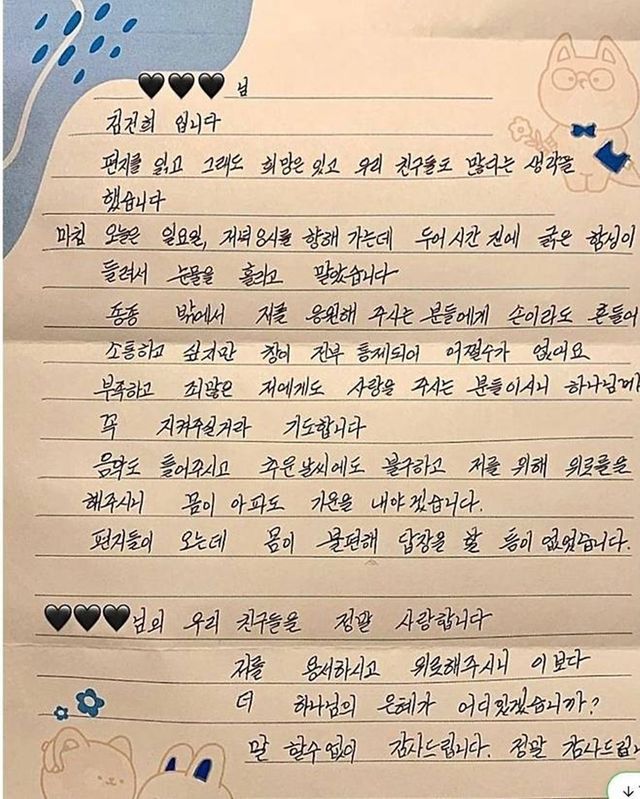 🖤🖤🖤님
김건희 입니다
편지를 읽고 그래도 희망은 있고 우리 친구들도 많다는 생각을
했습니다
마침 오늘은 일요일, 저녁 8시를 향해 가는데 두어시간 전에 굵은 함성이
들려서 눈물을 흘리고 말았습니다
종종 밖에서 저를 응원해 주시는 분들에게 손이라도 흔들어
소통하고 싶지만 창이 전부 통제되어 어쩔수가 없어요
부족하고 죄많은 저에게도 사랑을 주시는 분들이시니 하나님께서
꼭 지켜주실거라 기도합니다
음악도 틀어주시고 추운날씨에도 불구하고 저를 위해 위로를
해주시니 몸이 아파도 기운을 내야겠습니다.
편지들이 오는데 몸이 불편해 답장을 할 틈이 없었습니다.
🖤🖤🖤님의 우리 친구들을 정말 사랑합니다
저를 용서하시고 위로해주시니 이보다
더 하나님의 은혜가 어디있겠습니까?
말 할수없이 감사드립니다. 정말 감사드립니